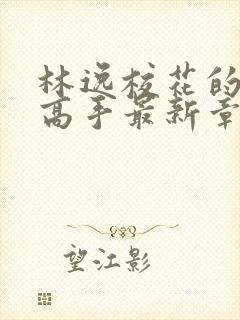 林逸校花的
高手最新章
望江影